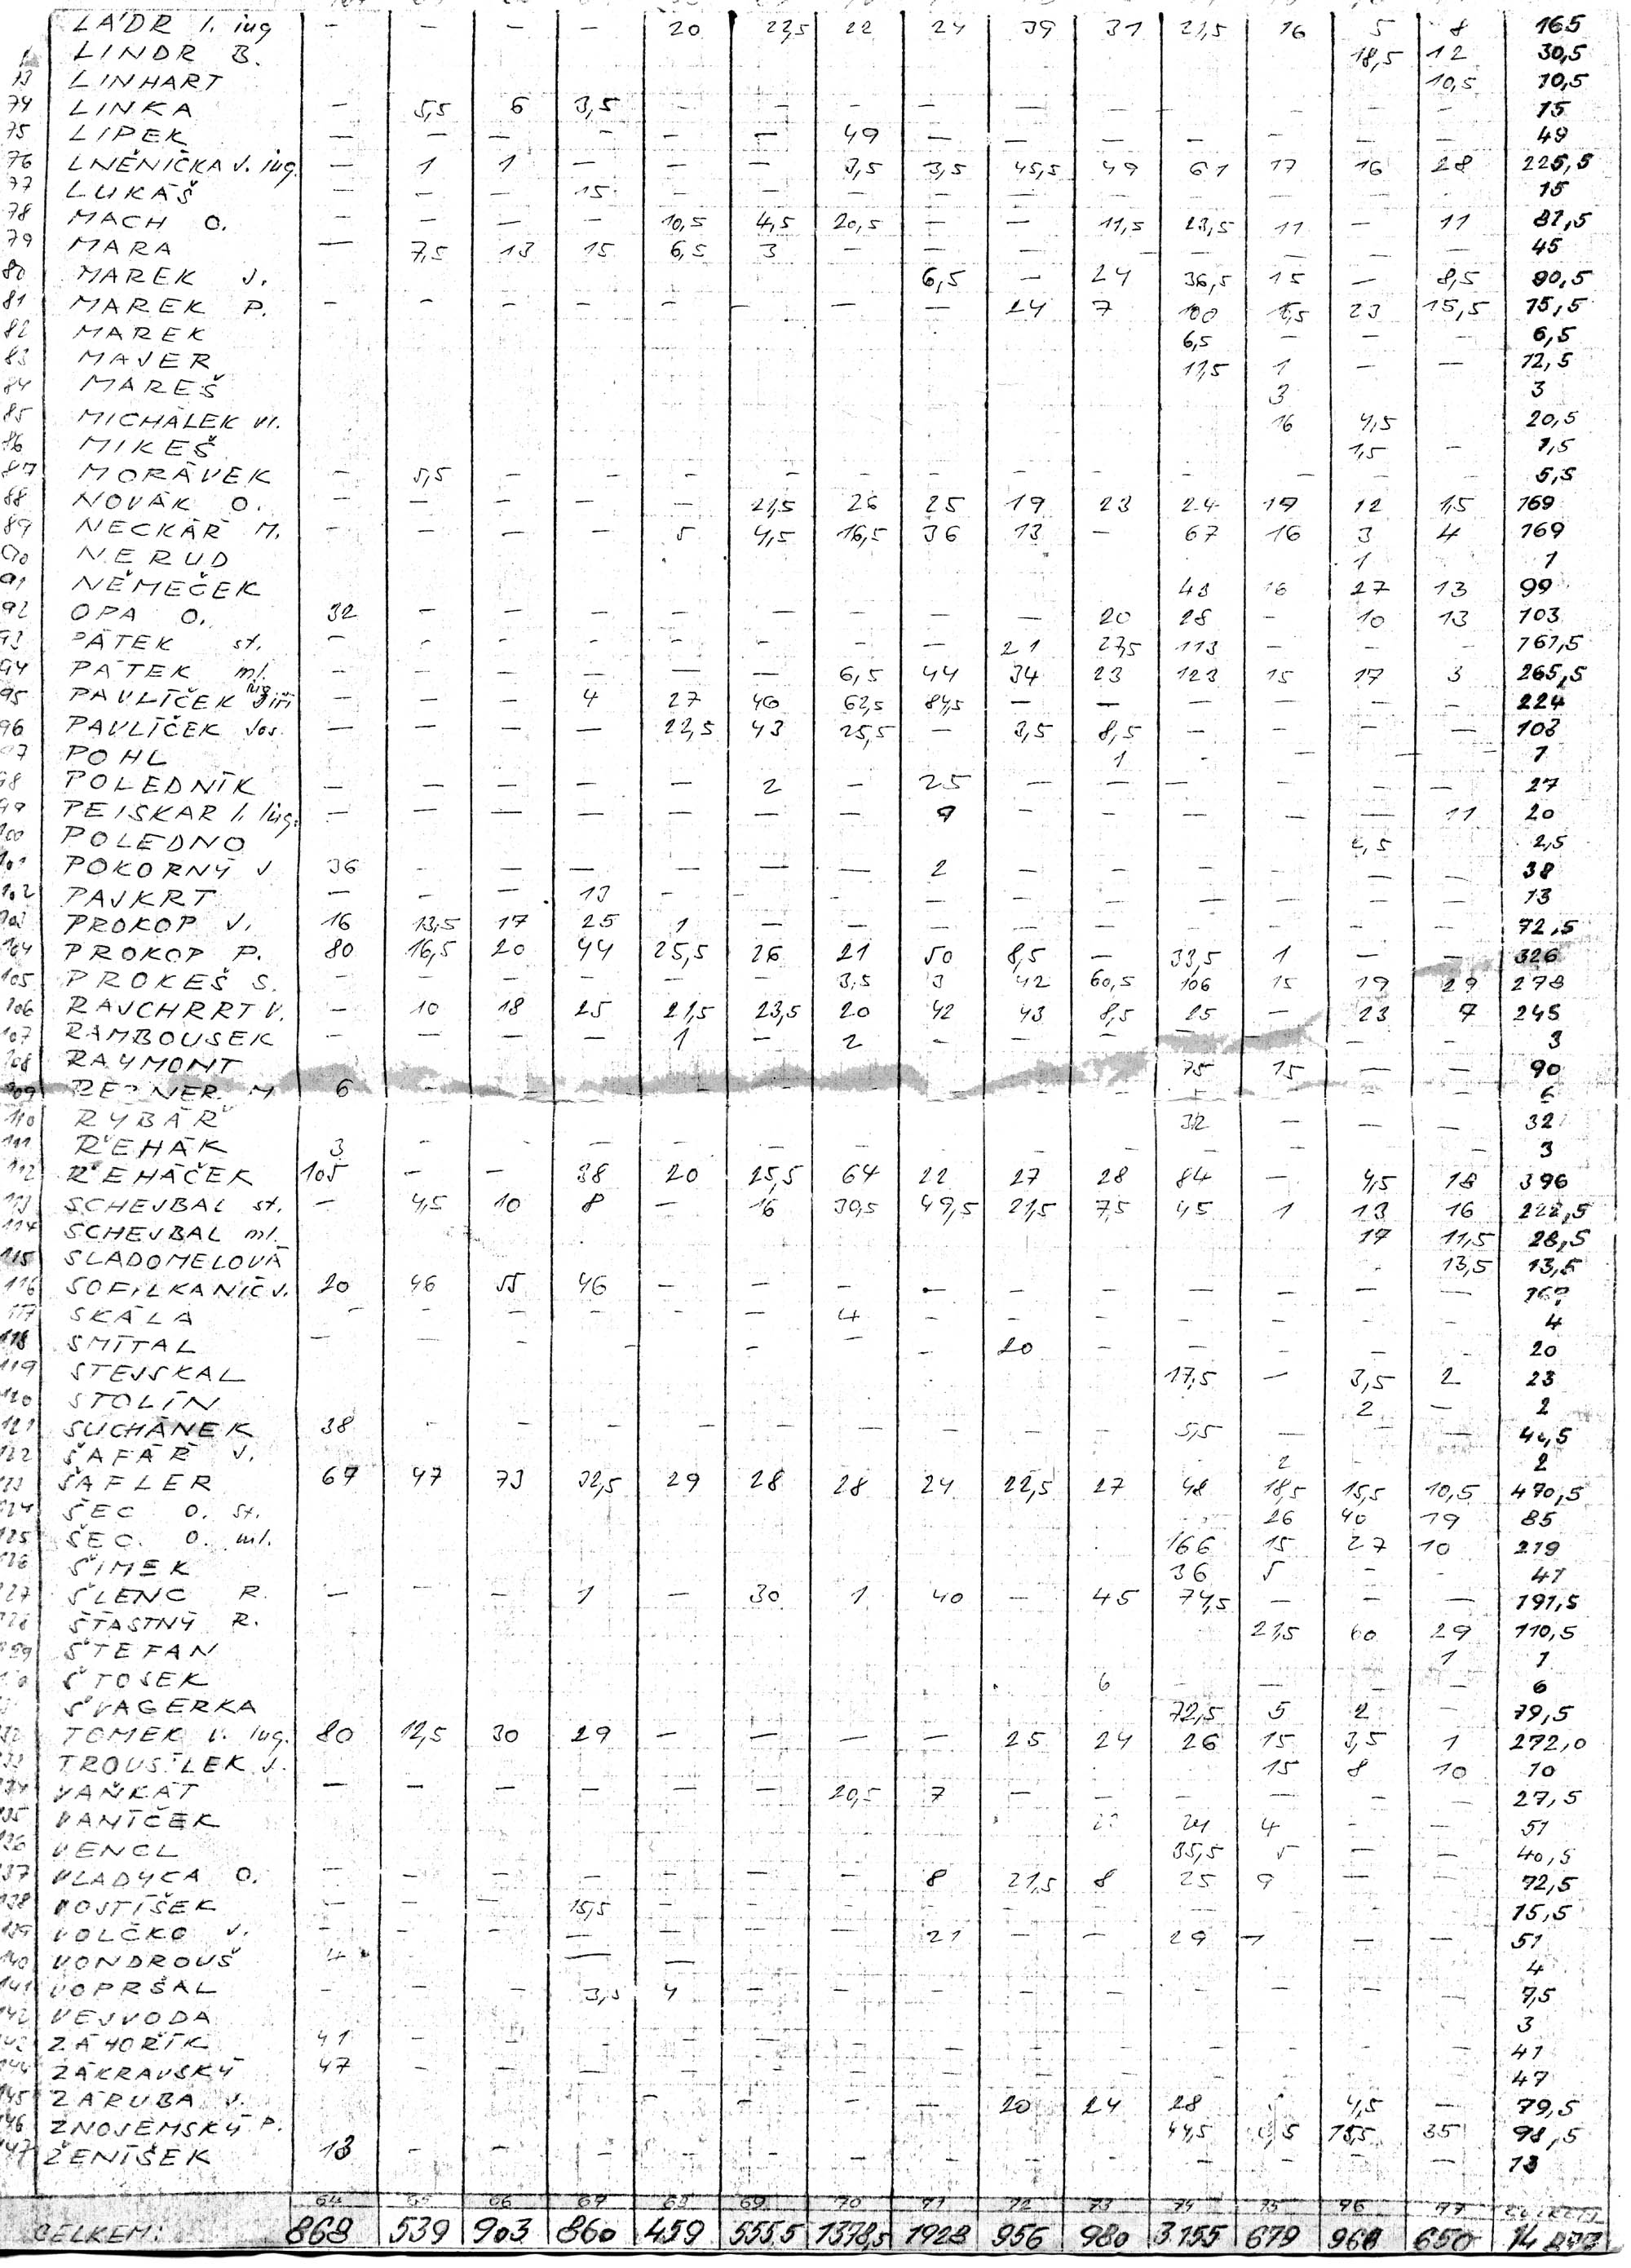 LÁDR I. ing - - - - 20 22,5 22 24 39 31 21,5 16 5 8 165
LINDR B. 18,5 12 30,5
73 LINHART 10,5 10,5
74 LINKA - 5,5 6 3,5 - - - - - - - - - - 15
75 LIPEK - - - - - - 49 - - - - - - - 49
76 LNĚNIČKA J. ing. - 1 1 - - - 3,5 3,5 45,5 49 61 17 16 28 225,5
77 LUKÁŠ - - - 15 - - - - - - - - - - 15
78 MACH O. - - - - 10,5 4,5 20,5 - - 11,5 23,5 11 - 11
79 MARA - 7,5 13 15 6,5 3 - - - - - - - - 45
80 MAREK J. 6,5 - 24 36,5 15 - 8,5 90,5
81 MAREK P. - - - - - - - - 24 7 100 23 15,5
82 MAREK 6,5 - - - 6,5
83 MAJER 11,5 1 - - 12,5
84 MAREŠ 3 3
85 MICHÁLEK Vl. 16 4,5 20,5
86 MIKEŠ 1,5 - 1,5
87 MORÁVEK - 5,5 - - - - - - - - - - - - 5,5
88 NOVÁK O. - - - - - 21,5 26 25 19 23 24 17 12 1,5 169
89 NECKÁŘ M. - - - - 5 4,5 16,5 36 13 - 67 16 3 4 169
90 NERUD 1 1
91 NĚMEČEK 43 16 27 13 99
92 OPA O. 32 - - - - - - - - 20 28 - 10 13 103
93 PÁTEK st. - - - - - - - - 21 27,5 113 - - - 161,5
94 PÁTEK ml. - - - - - - 6,5 44 34 23 123 15 17 3 265,5
95 PAVLÍČEK Jiří ing - - - 4 27 46 62,5 84,5 - - - - - - 224
96 PAVLÍČEK Jos. - - - - 22,5 43 25,5 - 3,5 8,5 - - - - 103
97 POHL 1 - - - 1
98 POLEDNÍK - - - - - 2 - 25 - - - - - - 27
99 PEISKAR I. ing. - - - - - - - 9 - - - - - 11 20
100 POLEDNO 2,5 2,5
101 POKORNÝ J 36 - - - - - - 2 - - - - - - 38
102 PAJKRT - - - 13 - - - - - - - - - - 13
103 PROKOP J. 16 13,5 17 25 1 - - - - - - - - - 72,5
104 PROKOP P. 80 16,5 20 44 25,5 26 21 50 8,5 - 33,5 1 - - 326
105 PROKEŠ S. - - - - - - 3,5 3 42 60,5 106 15 19 29 278
106 RAJCHRRT V. - 10 18 25 21,5 23,5 20 42 43 8,5 25 - 23 7 245
107 RAMBOUSEK - - - - 1 - 2 - - - - - - - 3
108 RAYMONT 75 15 - - 90
109 M 6 - - - - - - - - - - - - - 6
110 RYBÁŘ 32 - - - 32
111 ŘEHÁK 3 - - - - - - - - - - - - - 3
112 ŘEHÁČEK 105 - - 38 20 25,5 64 22 27 28 84 - 4,5 18 396
113 SCHEJBAL st. - 4,5 10 8 - 16 39,5 49,5 21,5 7,5 45 1 13 16 222,5
114 SCHEJBAL ml. 17 11,5 28,5
115 SLADOMELOVÁ 13,5 13,5
116 SOFILKANIČ J. 20 46 55 46 - - - - - - - - - -
117 SKÁLA - - - - - - 4 - - - - - - - 4
118 SMÍTAL - - - - - - - - 20 - - - - - 20
119 STEJSKAL 17,5 - 3,5 2 23
120 STOLÍN 2 - 2
121 SUCHÁNEK 38 - - - - - - - - - 5,5 - - -
122 ŠAFÁŘ J. 2 - - 2
123 ŠAFLER 67 47 73 32,5 29 28 28 24 22,5 27 48 18,5 15,5 10,5 470,5
124 ŠEC O. st. 26 40 19 85
125 ŠEC. O. ml. 166 15 27 10 219
126 ŠIMEK 36 5 - - 41
127 ŠLENC R. - - - 1 - 30 1 40 - 45 74,5 - - - 191,5
128 ŠŤASTNÝ R. 21,5 60 29 110,5
129 ŠTEFAN 1 1
130 ŠTOSEK 6 - - - - 6
ŠVAGERKA 72,5 5 2 - 79,5
132 TOMEK V. ing. 80 12,5 30 29 - - - - 25 24 26 15 3,5 1 272,0
133 TROUSÍLEK J. 15 8 10 10
134 VAŇKÁT - - - - - - 20,5 7 - - - - - - 27,5
135 VANÍČEK 24 4 - - 51
136 VENCL 35,5 5 - - 40,5
137 VLADYCA O. - - - - - - - 8 21,5 8 25 9 - - 72,5
138 VOJTÍŠEK - - - 15,5 - - - - - - - - - - 15,5
139 VOLČKO J. - - - - - - - 21 - - 29 1 - - 51
140 VONDROUŠ 4 - - 4
141 VOPRŠAL - - - 3,5 4 - - - - - - - - - 7,5
142 VEJVODA 3
143 ZÁHOŘÍK 41 - - - - - - - - - - - - - 41
144 ZÁKRAVSKÝ 47 - - - - - - - - - - - - - 47
145 ZÁRUBA J. - - - - 20 24 28 4,5 - 79,5
146 ZNOJEMSKÝ P. 44,5 15,5 35 98,5
147 ŽENÍŠEK 13 - - - - - - - - - - - - - 13
64 65 66 67 68 69 70 71 72 73 74 75 76 77
CELKEM: 868 539 903 860 459 555,5 1378,5 1928 956 980 3.155 679 968 650